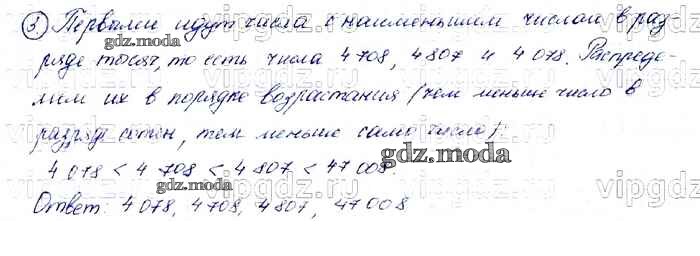 3. Первыми идут числа с наименьшим числом в раз
ряде тысяч, то есть числа 4 708, 4 807 и 4 078. Распреде-
лим их в порядке возрастания (чем меньше число в
разряде сотен, тем меньше само число):
4 078 < 4 708 < 4 807 < 47 008.
Ответ: 4 078, 4 708, 4 807, 47 008
gdz.moda
gdz.moda
gdz.moda
gdz.moda
vipgdz.ru